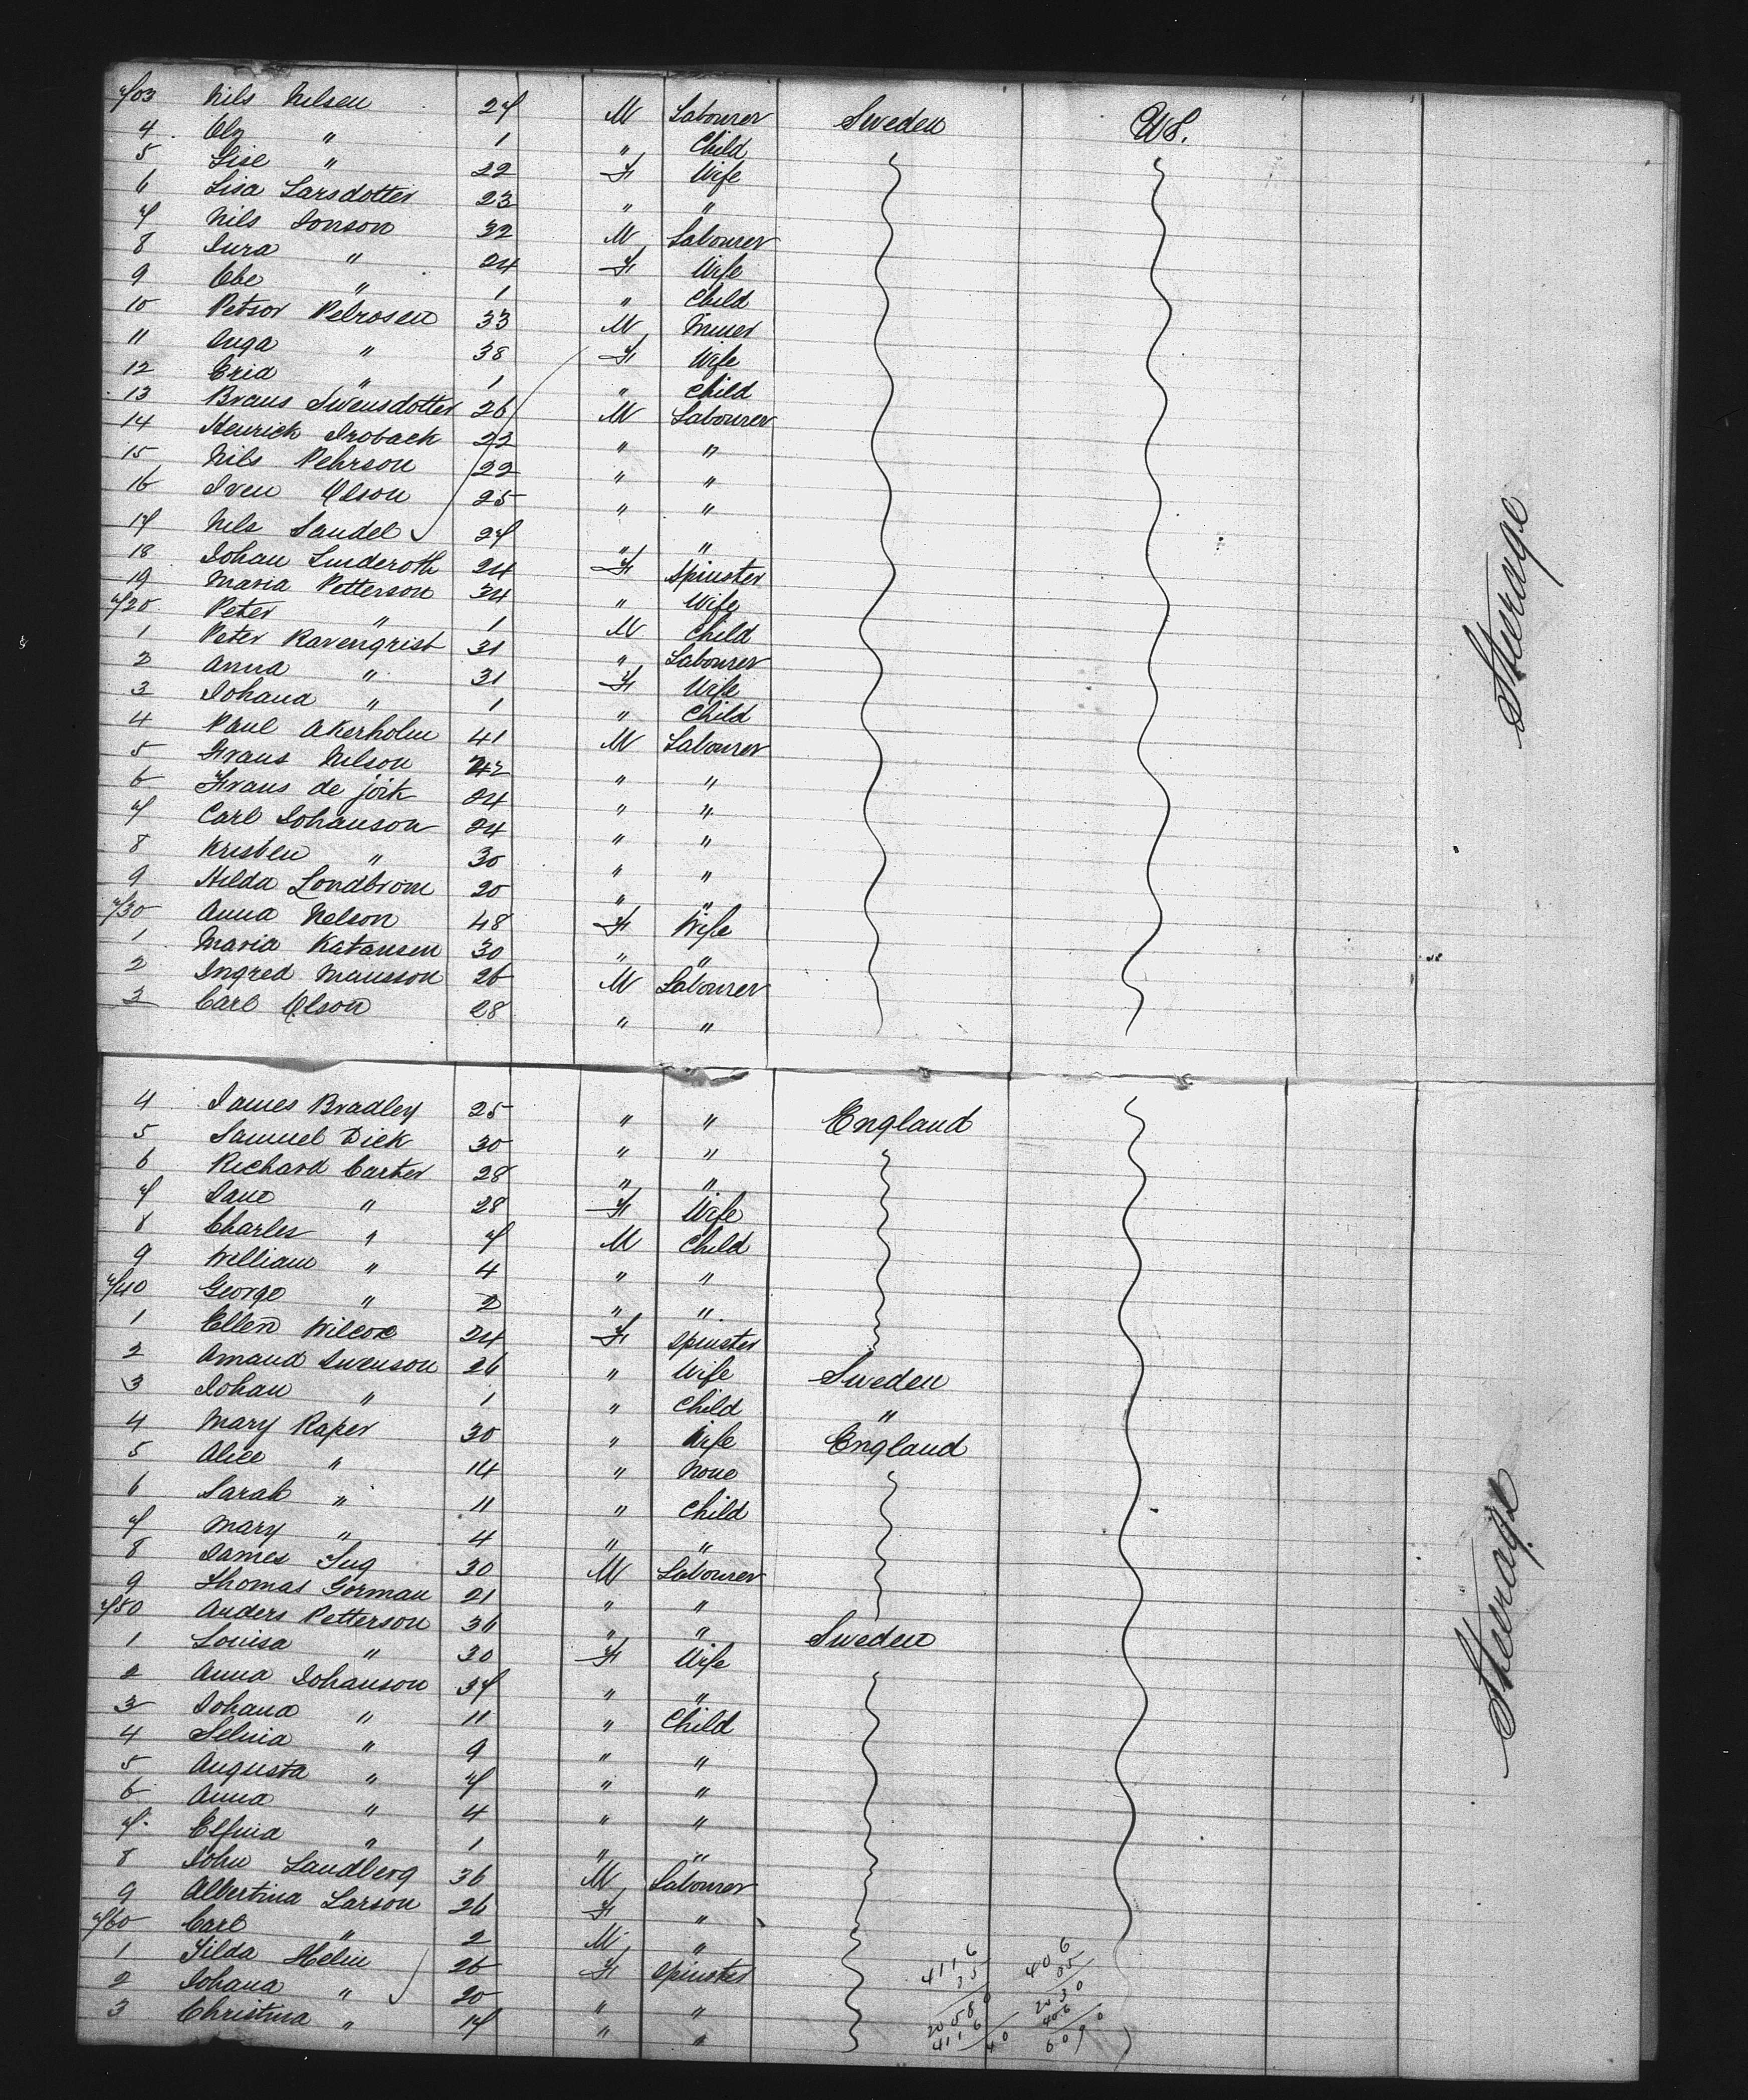 703 Nils Nilsen 27 M Labourer Sweden U.S.
4 Ola " 1 " Child
5 Lise " 22 F Wife
6 Lisa Larsdotter 23 " "
7 Nils Jonson 32 M Labourer
8 Sura " 24 F Wife
9 Obe " 1 " Child
10 Petsor Pelrosen 33 M Miner
11 Inga " 38 F Wife
12 Erid " 1 " Child
13 Braus Swensdotter 26 M Labourer
14 Henrick Droback 22 " "
15 Nils Pehrson 22 " "
16 Sven Olson 25 " "
17 Nils Sandel 27 " "
18 Johan Linderoth 24 F Spinster
19 Maria Petterson 34 " Wife
720 Peter " 1 M Child
1 Peter Ravenqrist 31 " Labourer
2 Anna " 31 F Wife
3 Johana " 1 " Child
4 Paul Akerholm 41 M Labourer
5 Frans Nilson 42 " "
6 Frans de jork 24 " "
7 Carl Johanson 24 " "
8 Kristen " 30 " "
9 Hilda Londbrom 20 " "
730 Anna Nelson 48 F Wife
1 Maria Katansen 30 " "
2 Ingred Mansson 26 M Labourer
3 Carl Olson 28 " "
Steerage
4 James Bradley 25 " " England
5 Samuel Dick 30 " "
6 Richard Carter 28 " "
7 Jane " 28 F Wife
8 Charles " 7 M Child
9 William " 4 " "
740 George " 2 " "
1 Ellen Wilcox 24 F Spinster
2 Amand Swenson 26 " Wife Sweden
3 Johan " 1 " Child "
4 Mary Raper 30 " Wife England
5 Alice " 14 " None
6 Sarah " 11 " Child
7 Mary " 4 " "
8 James Tug 30 M Labourer
9 Thomas Gorman 21 " "
750 Anders Petterson 36 " " Sweden
1 Louisa " 30 F Wife
2 Anna Johanson 37 " "
3 Johana " 11 " Child
4 Selma " 9 " "
5 Augusta " 7 " "
6 Anna " 4 " "
7 Elfina " 1 " "
8 John Sandberg 36 M Labourer
9 Albertina Larson 26 F "
760 Carl " 2 M "
1 Tilda Helm 26 F Spinster
2 Johana " 20 " "
3 Christina " 17 " "
Steerage